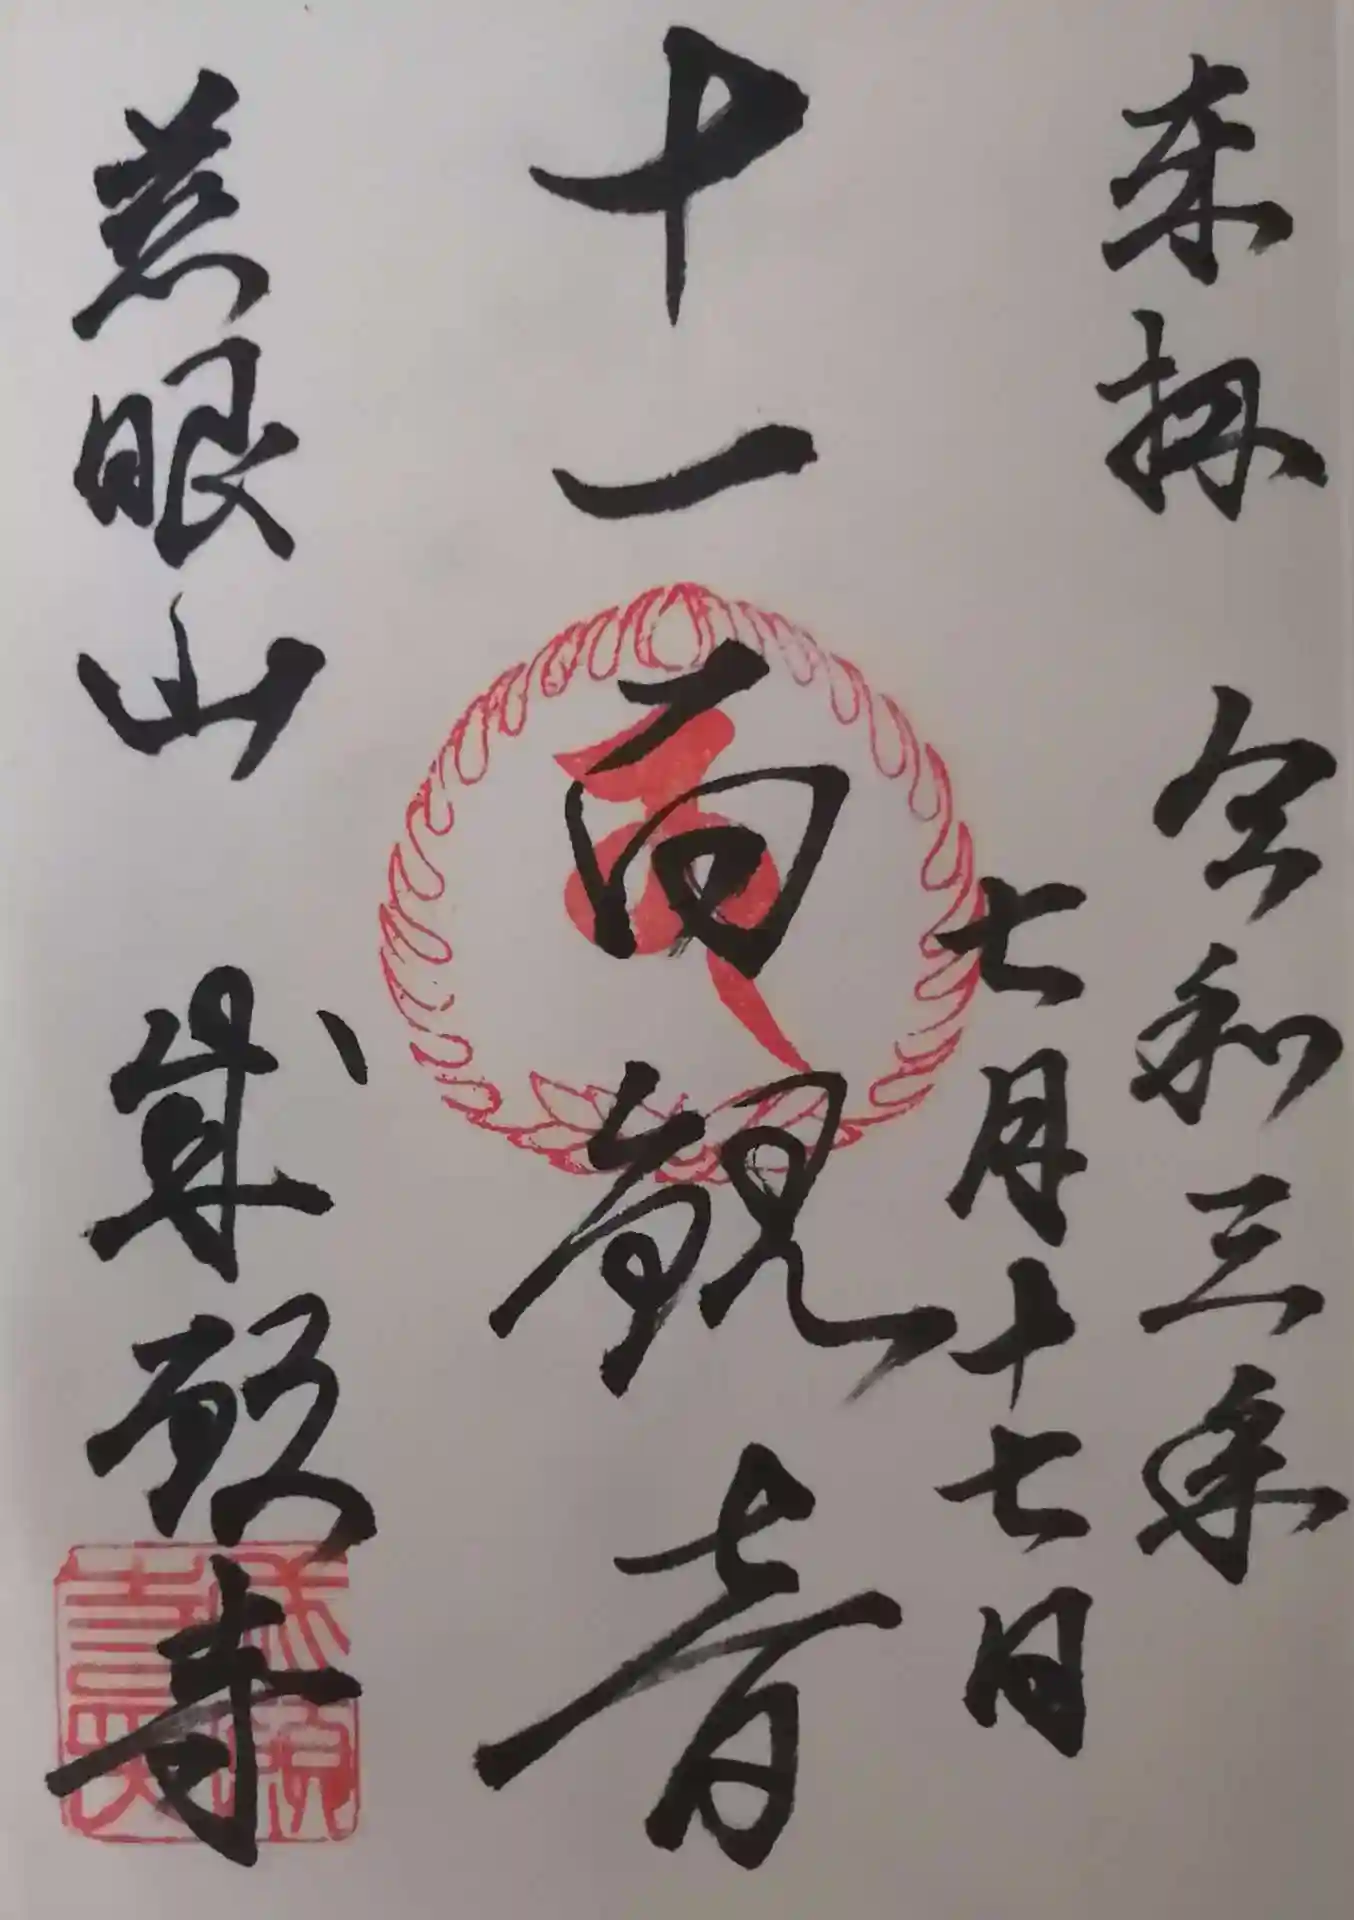 奉拝　令和三年
七月十七日
十一面観音
慈眼山　成願寺